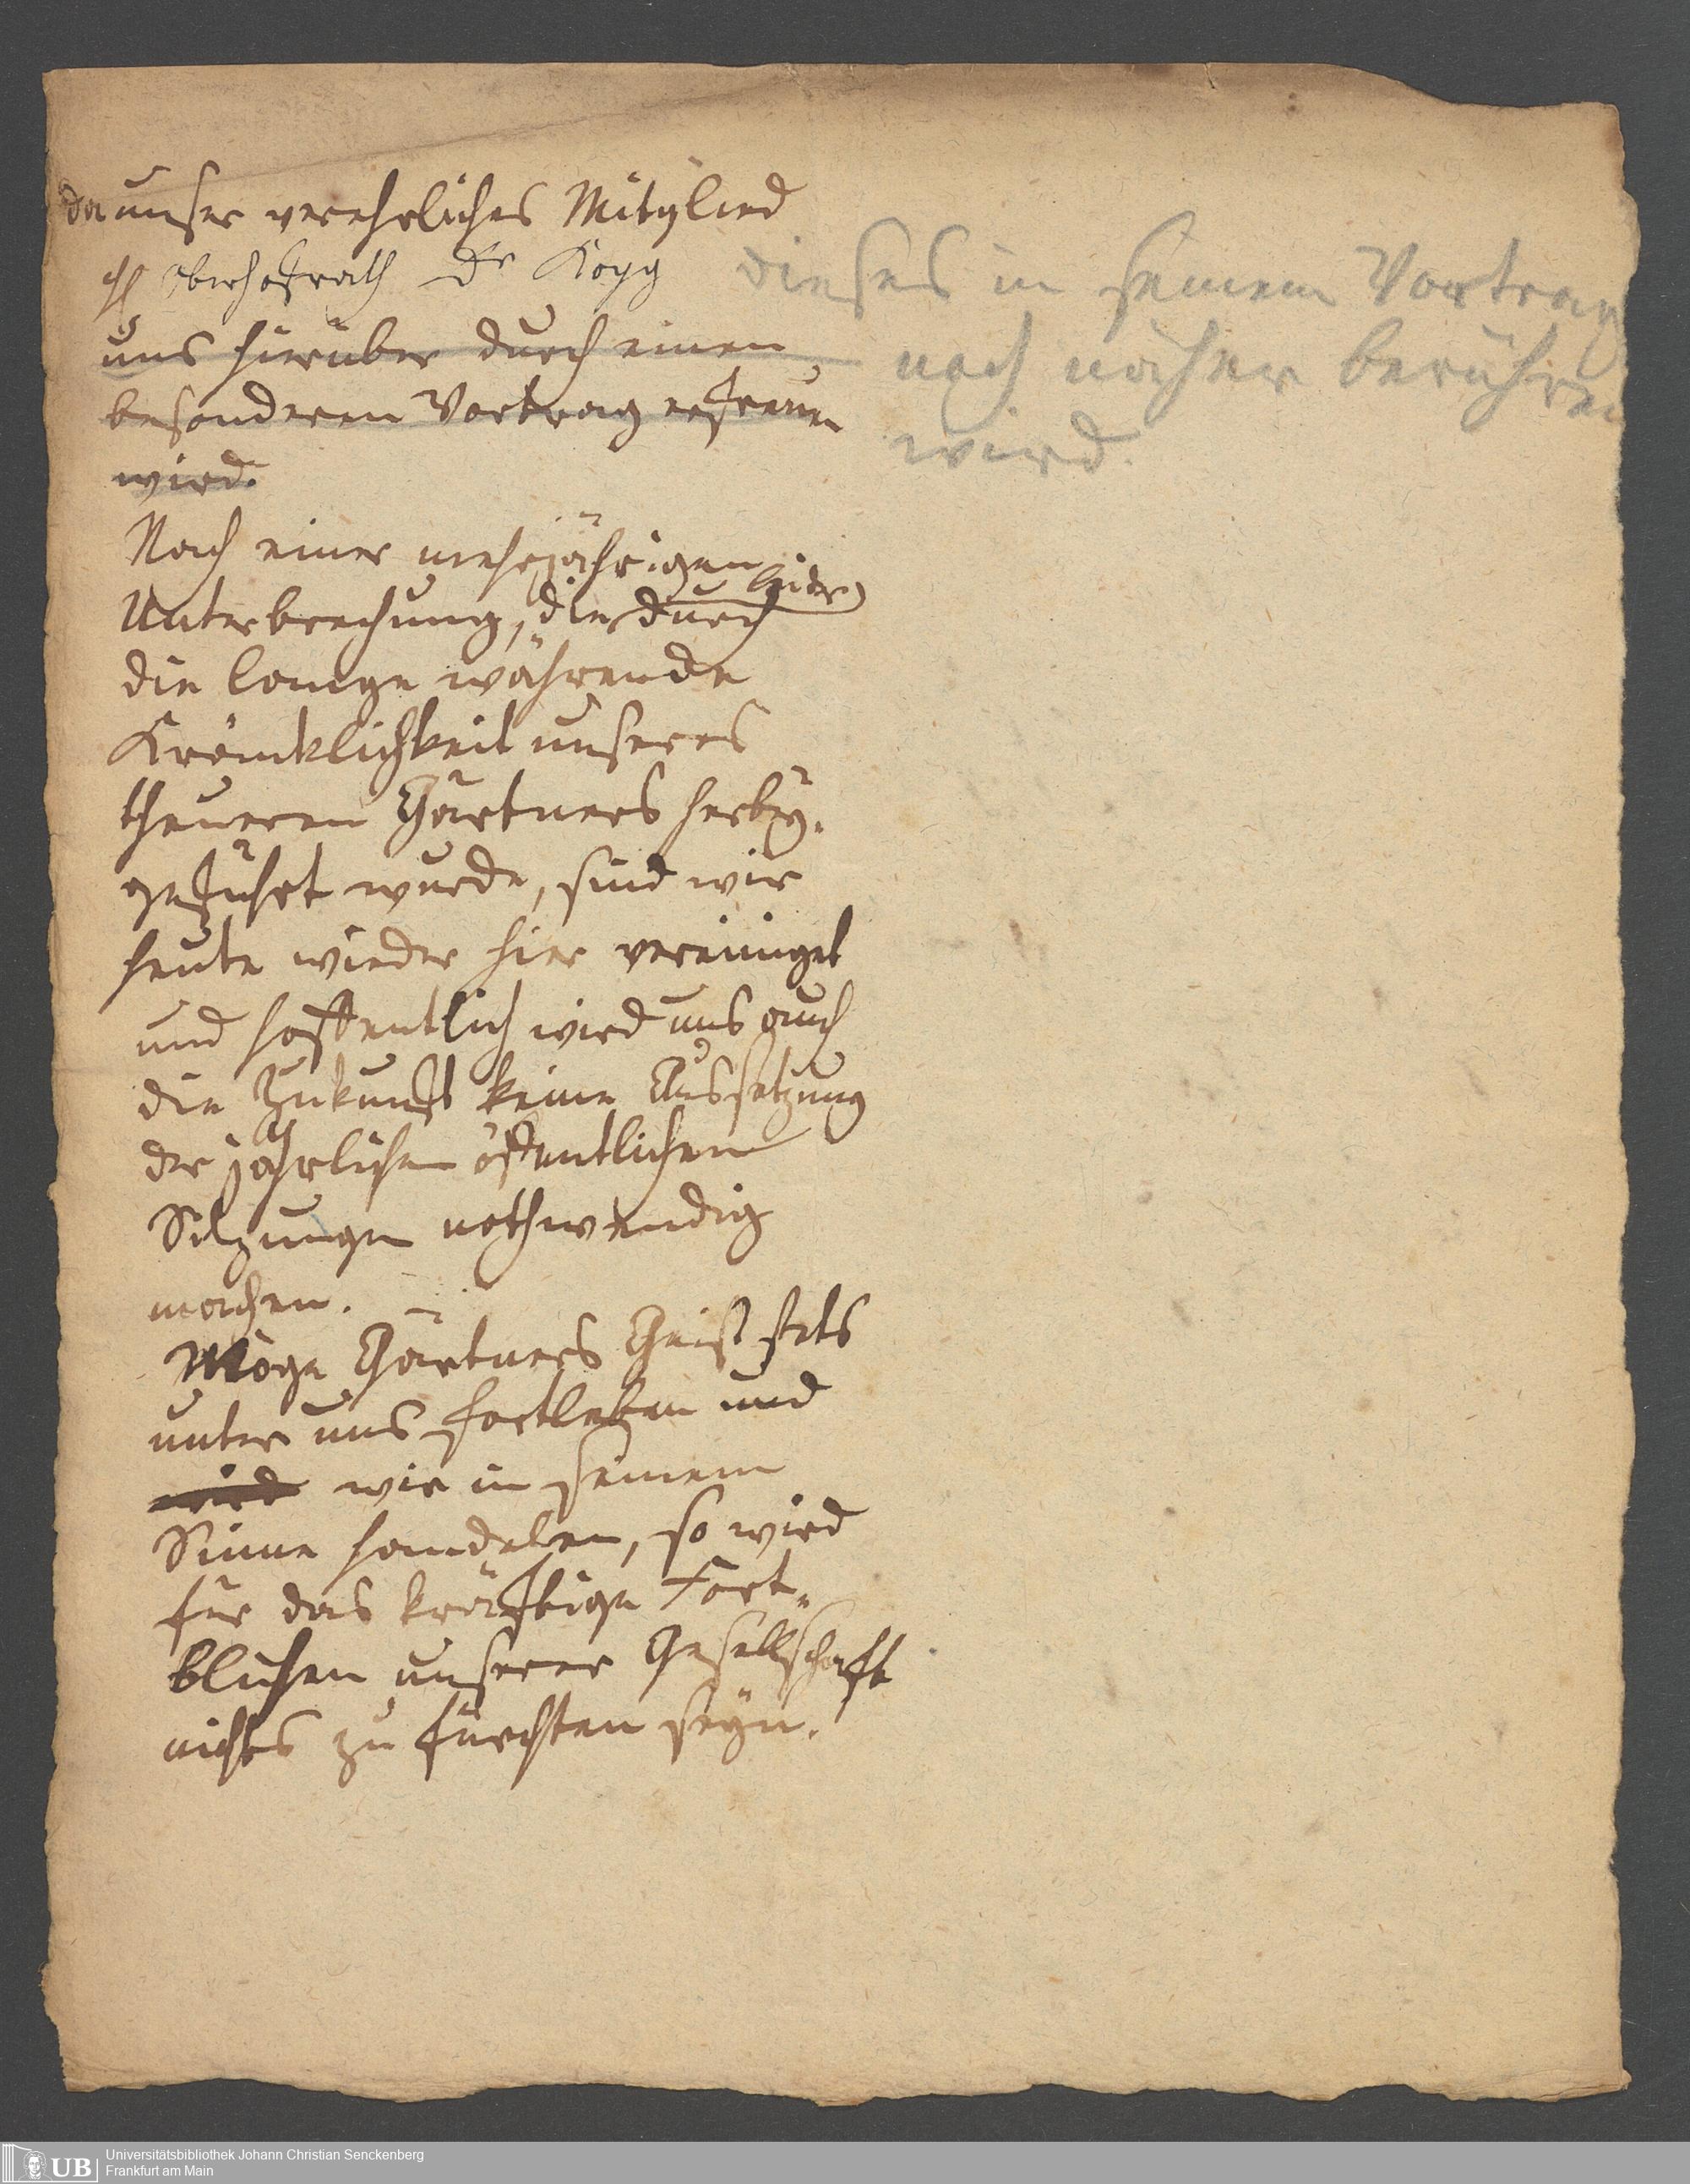 da unser verehrliches Mitglied
H Oberhofrath Dr Kopp
uns hierüber durch einen
besonderen Vortrag erfreuen
wird.
dieses in seinem Vortrag
noch näher berühren
wird.
Nach einer mehrjährigen
Unterbrechung, die leider durch
die lange währende
Kränklichkeit unseres
theueren Gärtners herbey-
geführt wurde, sind wir
heute wieder hier vereiniget
und hoffentlich wird uns auch
die Zukunft keine Aussetzung
der jährlichen öffentlichen
Sitzungen nothwendig
machen.
Möge Gärtners Geist stets
unter uns fortleben und
wird wir in seinem
Sinne handelen, so wird
für das kräftige Fort-
blühen unserer Gesellschaft
nichts zu fürchten seyn.
UB
Universitätsbibliothek Johann Christian Senckenberg
Frankfurt am Main